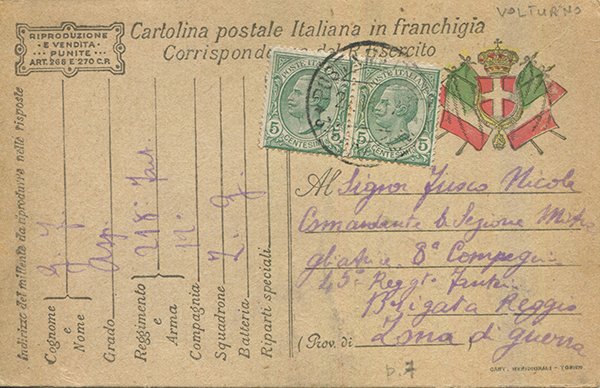 VOLTURNO
RIPRODUZIONE
E VENDITA
PUNITE
ART. 268 E 270 C.P.
Cartolina postale Italiana in franchigia
Corrispondenza del R. Esercito
POSTE ITALIANE
5 CENTESIMI 5
POSTE ITALIANE
5 CENTESIMI 5
Indirizzo del mittente da riprodurre nelle risposte
Cognome e Nome
Grado Asp.
Reggimento e Arma 218º Fant.
Compagnia
Squadrone
Batteria
Riparti speciali
Al Signor Fusco Nicola
Comandante la Sezione Mitra
gliatrice 8ª Compagnia
45º Reggto Fanteria
Brigata Reggio
(Prov. di Zona di guerra
p. 7
CART. MERIDIONALI - TORINO